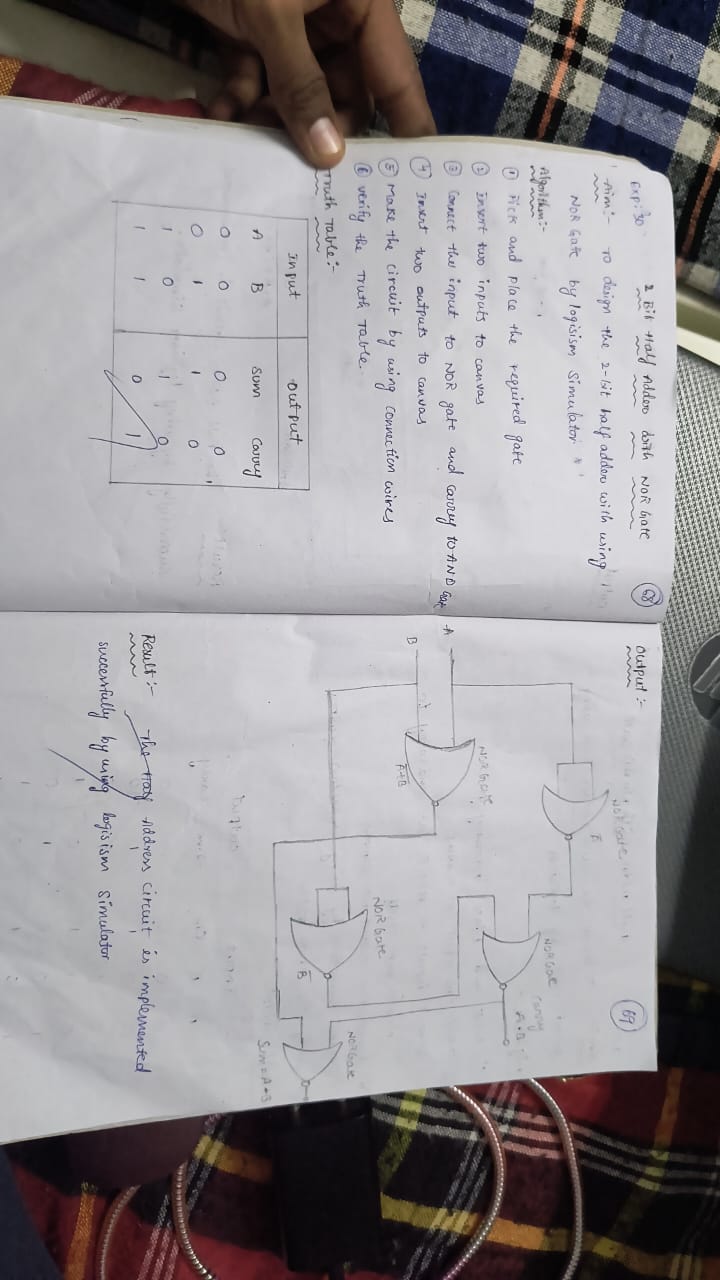 Exp: 30
2 Bit Half Adder with NOR Gate
68
Aim:- To design the 2-bit half adder with using
NOR Gate by logisism simulator
Algorithm:-
① Pick and place the required gate
② Insert two inputs to canvas
③ Connect the input to NOR gate and carry to AND Gate
④ Insert two outputs to canvas
⑤ Make the circuit by using connection wires
⑥ verify the truth table.
Truth Table:-
Input output
A B sum carry
0 0 0 0
0 1 1 0
1 0 1 0
1 1 0 1
69
output :-
NOR Gate
NOR Gate
carry
A
B
NOR GATE
NOR Gate
B̅
NOR Gate
Result :- The Half Address circuit is implemented
successfully by using logisism simulator